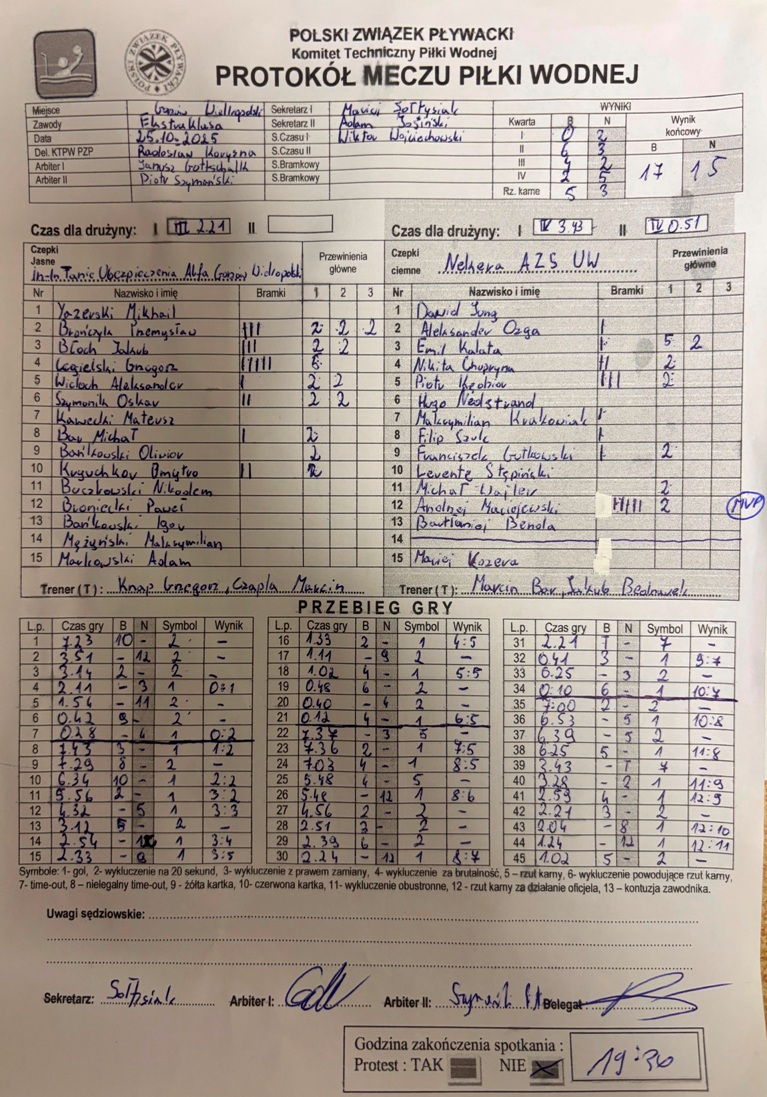 POLSKI ZWIĄZEK PŁYWACKI
Komitet Techniczny Piłki Wodnej
PROTOKÓŁ MECZU PIŁKI WODNEJ
POLSKI ZWIĄZEK PŁYWACKI
Miejsce Gorzów Wielkopolski Sekretarz I Maciej Sołtysiak WYNIKI
Zawody Ekstraklasa Sekretarz II Adam Kwarta B N Wynik końcowy
Data 25.10.2025 S.Czasu I Wiktor Wojciechowski I 0 2 B N
Del. KTPW PZP Radosław Koryzna S.Czasu II II 6 3
Arbiter I Janusz Gottschalk S.Bramkowy III 4 2 17 15
Arbiter II Piotr Szymański S.Bramkowy IV 2 5
Rz. karne 5 3
Czas dla drużyny: I III 2.21 II
Czas dla drużyny: I IV 3.43 II IV 0.51
Czepki Jasne Alfa Gorzów Wielkopolski Przewinienia główne
Nr Nazwisko i imię Bramki 1 2 3
1 Mikhail
2 Przemysław III 2 2 2
3 Błoch Jakub III 2 2
4 Grzegorz IIIII
5 Aleksander I 2 2
6 Szymonik Oskar II 2 2
7 Kawecki Mateusz
8 Bar Michał I 2
9 Bańkowski Oliwier 2
10 Dmytro II
11 Buczkowski Nikodem
12 Broniecki Paweł
13 Bańkowski Igor
14 Mężyński Maksymilian
15 Markowski Adam
Trener (T) : Knap Grzegorz, Czapla Marcin
Czepki ciemne AZS UW Przewinienia główne
Nr Nazwisko i imię Bramki 1 2 3
1 Dawid Jung
2 Aleksander Ozga I
3 Emil Kalata I 5 2
4 Nikita Chupryna II 2
5 Piotr III 2
6 Hugo
7 Maksymilian Krakowiak I
8 Filip Szulc I
9 Franciszek Gutkowski I 2
10 Levente Stępiński
11 Michał 2
12 Andrzej Maciejewski IIIII 2 MVP
13
14
15 Maciej Kozera
Trener (T) : Marcin Bar, Jakub Bednarek
PRZEBIEG GRY
L.p. Czas gry B N Symbol Wynik
1 7.23 10 - 2 -
2 3.51 - 12 2 -
3 3.14 2 - 2 -
4 2.11 - 3 1 0:1
5 1.54 - 11 2 -
6 0.42 9 - 2 -
7 0.28 - 4 1 0:2
8 7.43 3 - 1 1:2
9 7.29 8 - 2 -
10 6.34 10 - 1 2:2
11 5.56 2 - 1 3:2
12 4.32 - 5 1 3:3
13 3.12 5 - 2 -
14 2.54 - 1 3:4
15 2.33 - 9 1 3:5
L.p. Czas gry B N Symbol Wynik
16 1.33 2 - 1 4:5
17 1.11 - 9 2 -
18 1.02 4 - 1 5:5
19 0.48 6 - 2 -
20 0.40 - 4 2 -
21 0.12 4 - 1 6:5
22 7.37 - 3 5 -
23 7.36 2 - 1 7:5
24 7.03 4 - 1 8:5
25 5.48 4 - 5 -
26 5.48 - 12 1 8:6
27 4.56 2 - 2 -
28 2.51 3 - 2 -
29 2.39 6 - 2 -
30 2.24 - 12 1 8:7
L.p. Czas gry B N Symbol Wynik
31 2.21 T - 7 -
32 0.41 3 - 1 9:7
33 6.25 - 3 2 -
34 0:10 6 - 1 10:7
35 7:00 2 - 2 -
36 6.53 - 5 1 10:8
37 6.39 - 5 2 -
38 6.25 5 - 1 11:8
39 3.43 - T 7 -
40 3.28 - 2 1 11:9
41 2.59 4 - 1 12:9
42 2.21 3 - 2 -
43 2.04 - 8 1 12:10
44 1.24 - 12 1 12:11
45 1.02 5 - 2 -
Symbole: 1- gol, 2- wykluczenie na 20 sekund, 3- wykluczenie z prawem zamiany, 4- wykluczenie za brutalność, 5 – rzut karny, 6- wykluczenie powodujące rzut karny,
7- time-out, 8 – nielegalny time-out, 9 - żółta kartka, 10- czerwona kartka, 11- wykluczenie obustronne, 12 - rzut karny za działanie oficjela, 13 – kontuzja zawodnika.
Uwagi sędziowskie:
Sekretarz: Sołtysiak Arbiter I: Arbiter II: Delegat
Godzina zakończenia spotkania :
Protest : TAK NIE 19:30